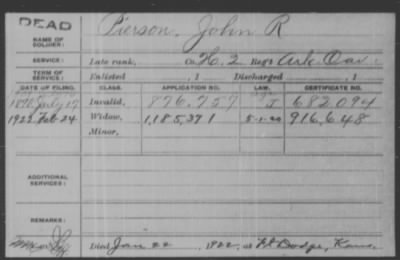 DEAD
NAME OF SOLDIER: Pierson, John R
SERVICE: Late rank, Co. H. 2 Reg't Ark. Cav.
TERM OF SERVICE: Enlisted , 1 Discharged , 1
DATE OF FILING. CLASS. APPLICATION NO. LAW. CERTIFICATE NO.
1890 July 17 Invalid, 876.757 J 682.094
1922 Feb 24 Widow, 1,185,371 5-1-20 916,648
Minor,
ADDITIONAL SERVICES:
REMARKS:
Died Jan 22 , 1922, at Ft Dodge, Kans.